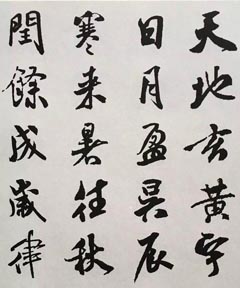 天地玄黃宇
日月盈昃辰
寒来暑往秋
閏餘成歲律